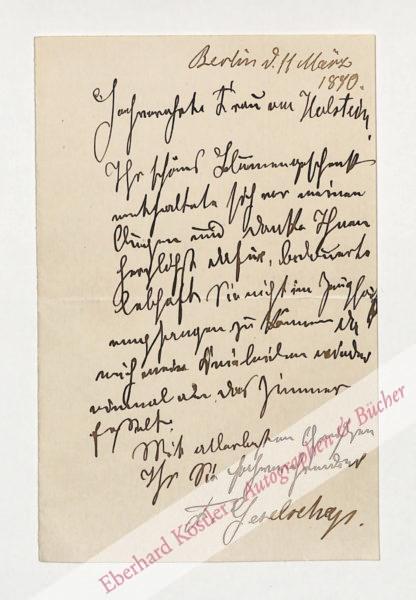 Berlin d. 11 März
1890.
Hochverehrte Frau von Holstein,
Ihr schönes Blumengeschenk
entfaltete sich vor meinen
Augen und danke Ihnen
herzlichst dafür, bedauerte
lebhaft Sie nicht im Zeughaus
empfangen zu können da
mich meine wieder
einmal an das Zimmer
fesselt.
Mit allerbesten Grüßen
Ihr Sie hochverehrender
F. Geselschap.
Eberhard Köstler Autographen & Bücher